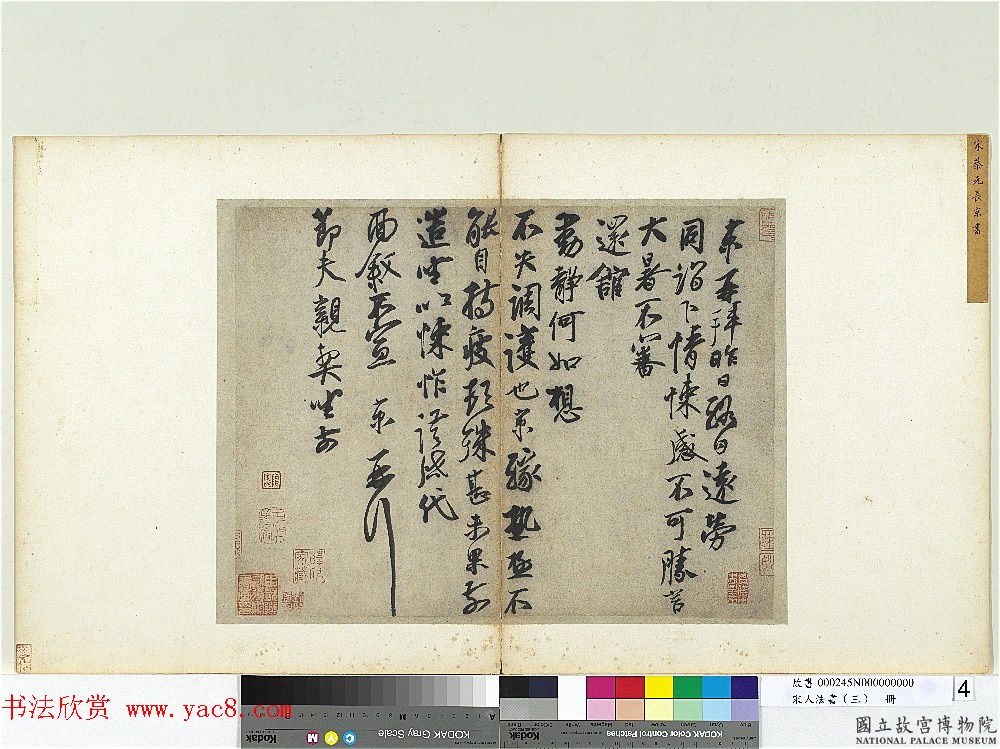 宋蔡元長京書
京再拜昨日終日遠勞
同詣下情悚感不可勝言
大暑不審
還館
動靜何如想
不失調護也京緣熱極不
能自持疲頓殊甚未果前
造坐以悚怍謹啟代
面敘不宣 京再拜
節夫親契坐前
书法欣赏 www.yac8.com
KODAK Gray Scale
Kodak
KODAK Color Control Patches
故書 000245N000000000
宋人法書（三） 冊
4
國立故宮博物院
NATIONAL PALACE MUSEUM